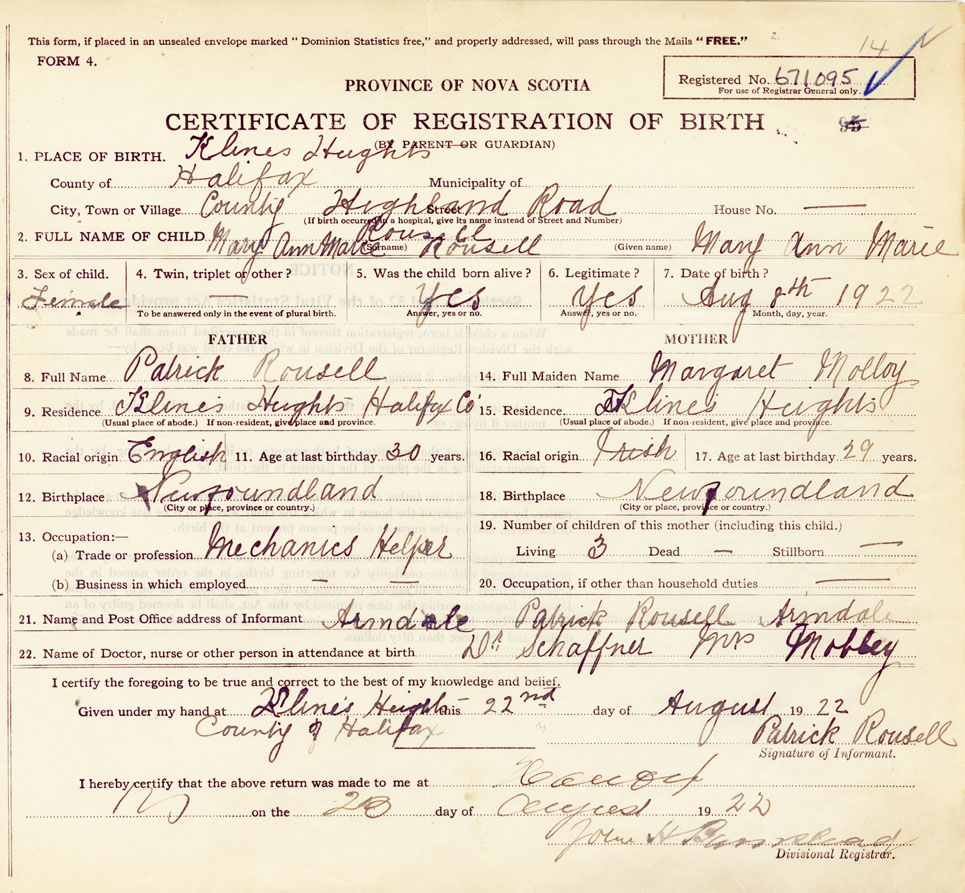 This form, if placed in an unsealed envelope marked "Dominion Statistics free," and properly addressed, will pass through the Mails "FREE."
14
FORM 4.
Registered No. 671095
For use of Registrar General only.
PROVINCE OF NOVA SCOTIA
CERTIFICATE OF REGISTRATION OF BIRTH
(BY PARENT OR GUARDIAN)
1. PLACE OF BIRTH. Klines Heights
County of Halifax Municipality of
City, Town or Village County Highland Road Street House No. —
(If birth occurred in a hospital, give its name instead of Street and Number)
Rousell
2. FULL NAME OF CHILD Mary Ann Marie Rousell (Surname) (Given name) Mary Ann Marie
3. Sex of child. 4. Twin, triplet or other? 5. Was the child born alive? 6. Legitimate? 7. Date of birth?
Female — Yes Yes Aug 8th 1922
To be answered only in the event of plural birth. Answer, yes or no. Answer, yes or no. Month, day, year.
FATHER MOTHER
8. Full Name Patrick Rousell 14. Full Maiden Name Margaret Molloy
9. Residence Klines Heights Halifax Co 15. Residence. Klines Heights
(Usual place of abode.) If non-resident, give place and province. (Usual place of abode.) If non-resident, give place and province.
10. Racial origin English 11. Age at last birthday 30 years. 16. Racial origin Irish 17. Age at last birthday 29 years.
12. Birthplace Newfoundland 18. Birthplace Newfoundland
(City or place, province or country.) (City or place, province or country.)
13. Occupation:— 19. Number of children of this mother (including this child.)
(a) Trade or profession Mechanics Helper Living 3 Dead — Stillborn —
(b) Business in which employed — — 20. Occupation, if other than household duties —
21. Name and Post Office address of Informant Armdale Patrick Rousell Armdale
22. Name of Doctor, nurse or other person in attendance at birth Dr Schaffner Mrs Mobley
I certify the foregoing to be true and correct to the best of my knowledge and belief.
Given under my hand at Klines Heights this 22nd day of August 1922
County of Halifax Patrick Rousell
Signature of Informant.
I hereby certify that the above return was made to me at
on the 23 day of August 1922
John H
Divisional Registrar.